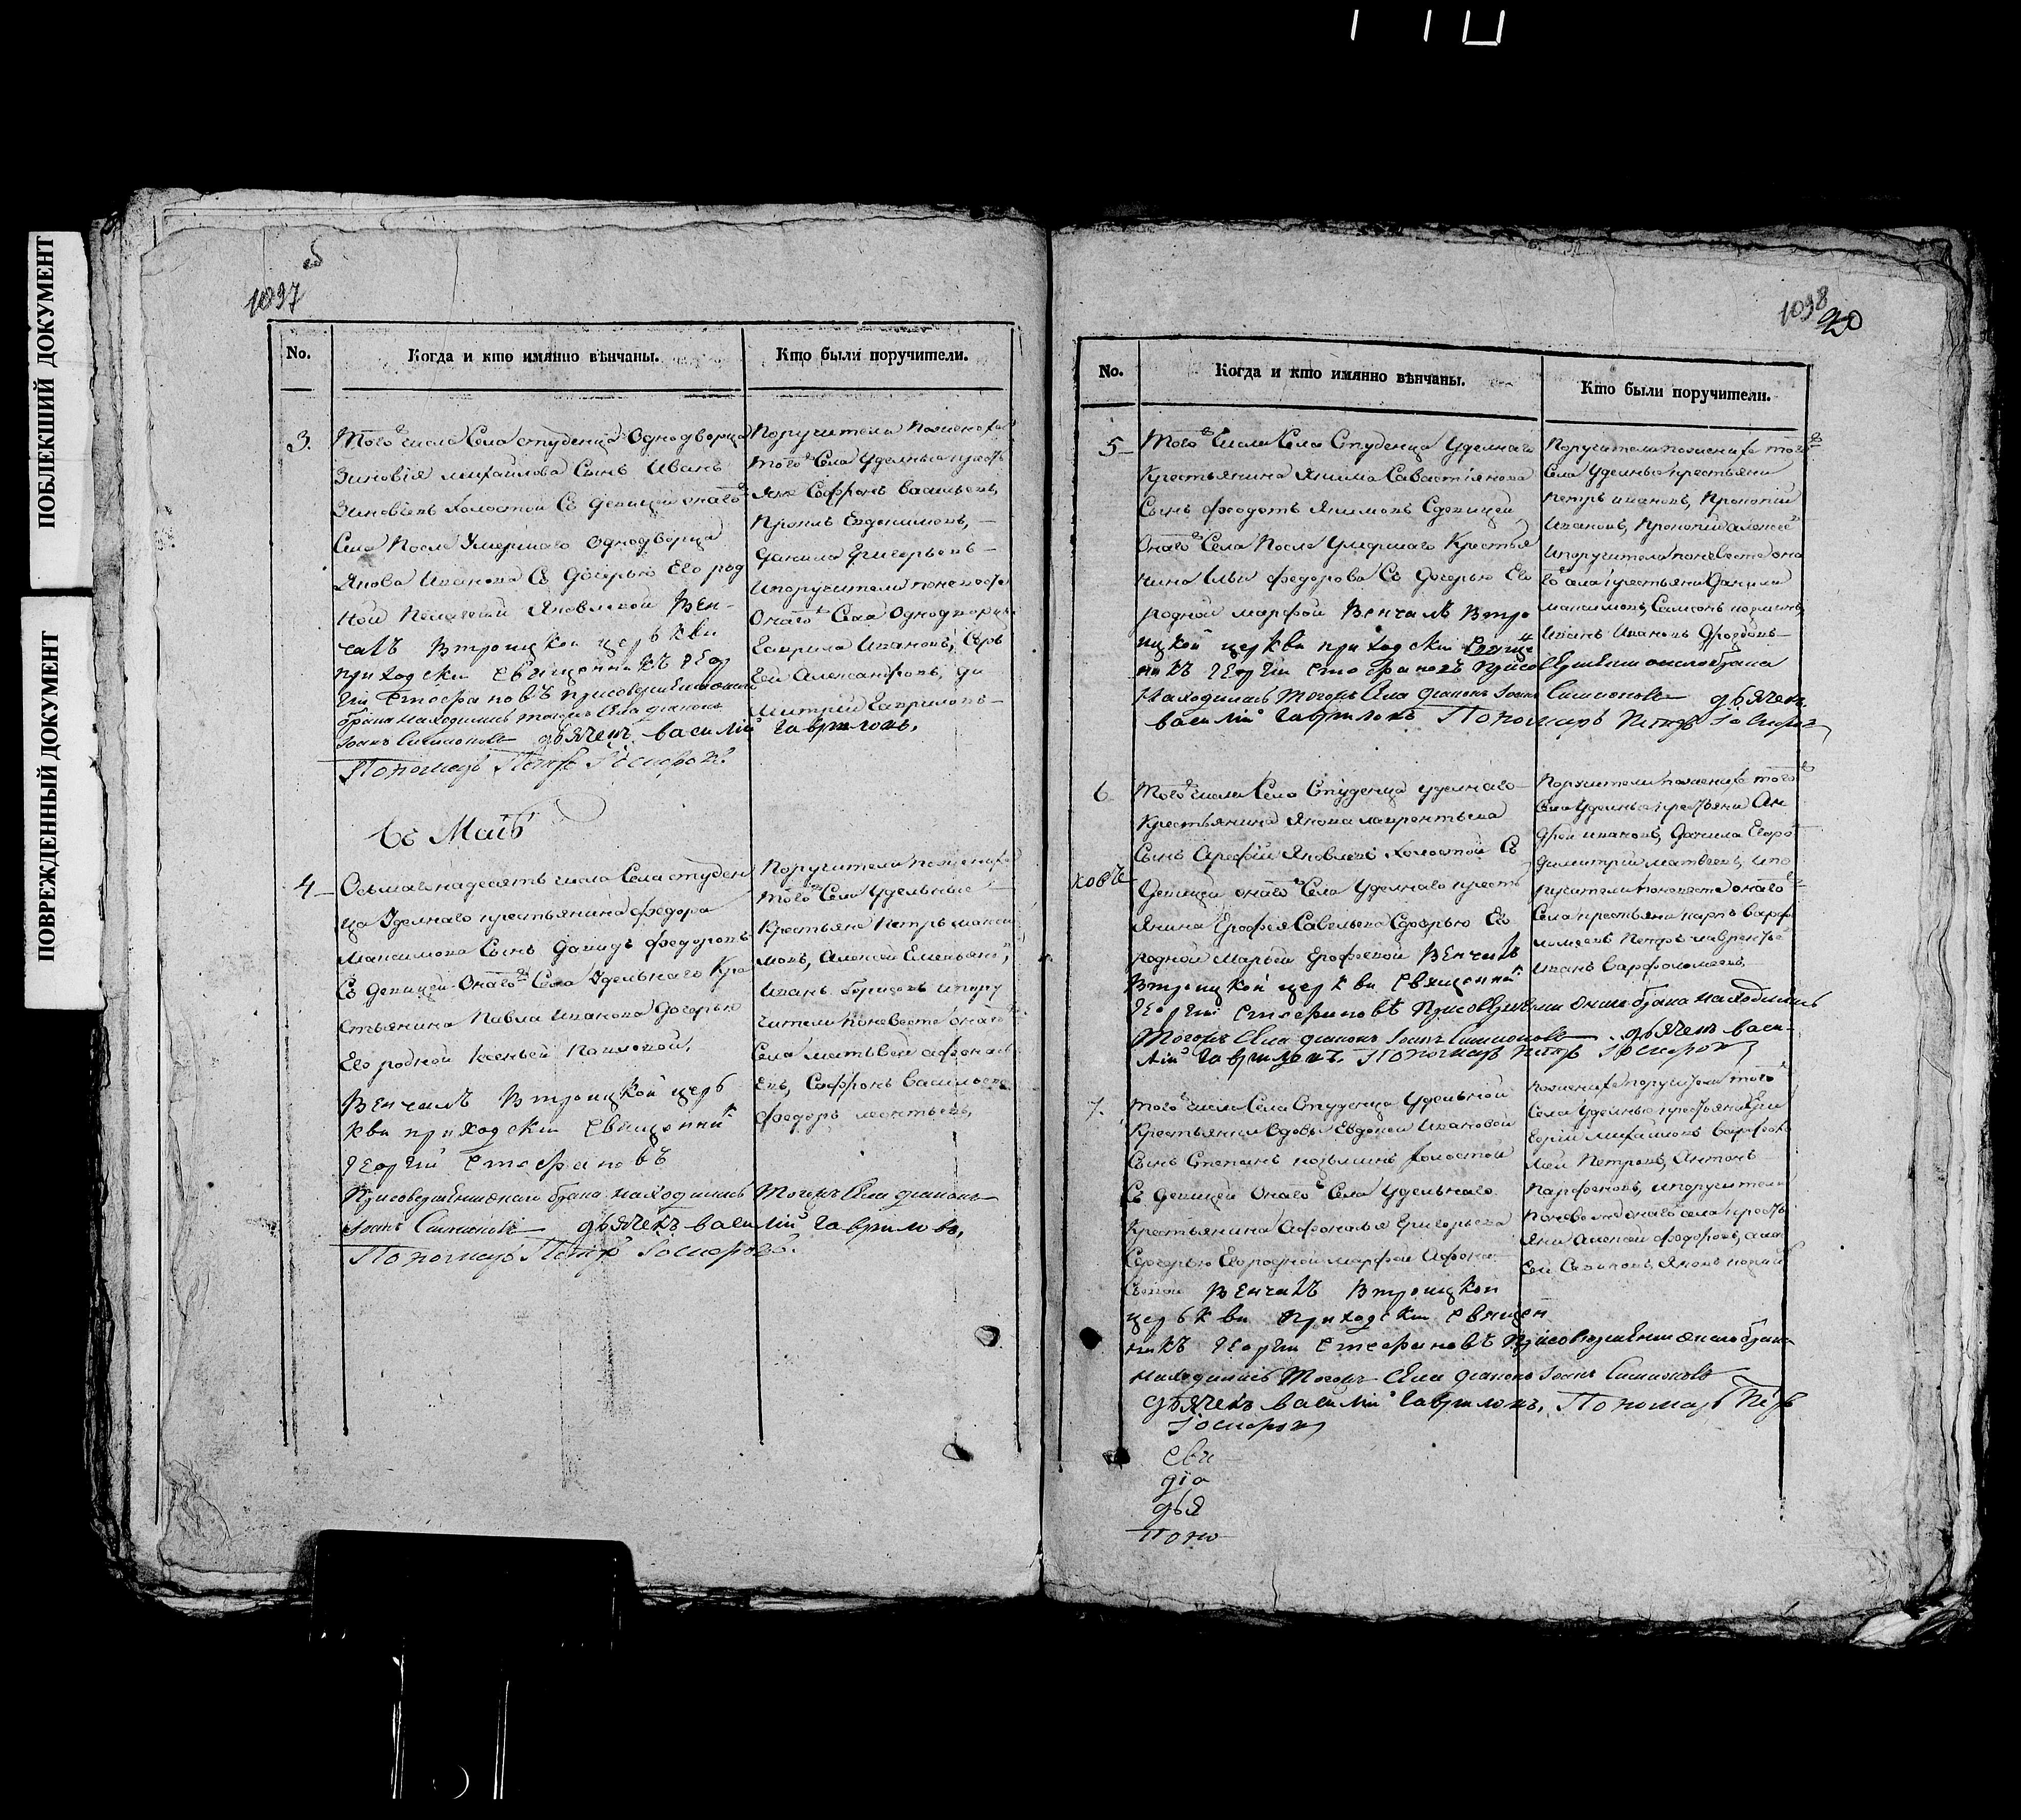 ПОБЛЕКШИЙ ДОКУМЕНТ
ПОВРЕЖДЕННЫЙ ДОКУМЕНТ
1097
No.
Когда и кто имянно вѣнчаны.
Кто были поручители.
3.
Того числа Села студенца Однодворца
Зиновія михайлова Сынъ Иванъ
Зиновіевъ холостой Съ девицей онаго
Села После Умершаго Однодворца
Якова Иванова Съ дочерью Его род
ной Пелагеей Яковлевой Вен-
чалъ Втроицкой церькви
приходски Священникъ Геор
гій Стефановъ присовершеніи онаго
брака находились тогожъ Села діаконъ
Іоанъ Симионовъ дьячекъ василій Гавриловъ.
Пономарь Петръ
Поручители пожениха
того Села Удельные кресть
яне Софронъ Васильевъ,
Евдокимовъ,
Данила Григорьевъ
ипоручители поневесте
Онаго Села Однодворцы
Гаврила Ивановъ, Сергъ
ей Александровъ, ди
митрій Гавриловъ
Въ Маіѣ
4
Осьмагонадесять числа Села студен
ца Уделнаго крестьянина федора
Максимова Сынъ Давидъ федоровъ
Съ девицей Онаго Села Удельнаго Кре
стьянина Павла Иванова дочерью
Его родной Ксеньей Павловой,
Венчалъ Втроицкой церь
кви приходски Священни
Георгій Стефановъ
Присовершеніи онаго брака находились Тогожъ Села діаконъ
Іоанъ Симионовъ дьячекъ василій Гавриловъ,
Пономарь Петръ
Поручители пожениха
того Села Удельные
Крестьяне Петръ макси
мовъ, Алексей Емельяно,
Иванъ Борисовъ ипору
чители поневесте онаго
Села матьвей афонась
евъ, Софронъ Васильевъ
федоръ леонтьевъ,
1098
No.
Когда и кто имянно вѣнчаны.
Кто были поручители.
5
Того Числа Села Студенца Уделнаго
Крестьянина Якима Савастіянова
Сынъ феодотъ Якимовъ Сдевицей
Онаго Села После Умершаго Крестья
нина Ильи федорова Съ дочерью Его
родной марфой Венчалъ Втро
ицкой церкви приходски Свяще
никъ Георгій Стефановъ присовершеніи онаго брака
Находились тогожъ Села діаконъ Іоанъ Симионовъ дьячекъ
василій Гавриловъ Пономарь Петръ
Поручители пожениха того
Села Удельные крестьяни
Петръ ивановъ, Прокопій
Ивановъ, Прокопій алексе
ипоручители поневесте она
го села крестьяни Данила
максимовъ, Самсонъ
Иванъ Ивановъ
6
Того числа Села Студенца уделнаго
Крестьянина Якова лаврентьева
Сынъ Арефій Яковлевъ холостой Съ
девицей онаго Села Уделнаго кресть
янина Ерофея Савельева Сдочерью Его
родной Марьей Ерофеевой Венчалъ
Втроицкой церкви Священни
Георгій Стефановъ Присовершеніи Онаго брака находились
Тогожъ Села діаконъ Іоанъ Симионовъ дьячекъ васи
лій Гавриловъ. Пономарь Петръ
Поручители пожениха того
Села Удельные крестьяни Ан
дрей ивановъ, Данила Егоро
димитрій матвеевъ, ипо
ручители поневесте онаго
Села крестьяни карпъ Варфо
ломеевъ Петръ лаврентье
Иванъ Варфоломеевъ
7.
Того числа Села Студенца Удельной
Крестьянки вдовы Евдокеи Ивановой
Сынъ Степанъ козьминъ холостой
Съ девицей Онаго Села Удельнаго
Крестьянина Афонасья Григорьева
Сдочерью Его родной марфой Афона
сьевой Венчалъ Втроицкой
церькви Приходски Священ
никъ Георгій Стефановъ Присовершеніи онаго брака
находились Тогожъ Села діаконъ Іоанъ Симионовъ
дьячекъ василій Гавриловъ, Пономарь Петръ
пожениха поручители того
Села Удельные крестьяни Гри
горій михайловъ варфоло
мей Петровъ, Антонъ
Парфеновъ, ипоручители
поневесте онаго села кресть
яни Алексей федоровъ, але
ксей Савиновъ, Яковъ
Свя
діа
дья
Поно